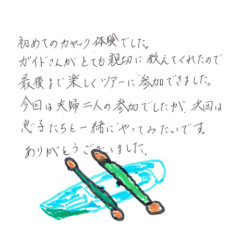 初めてのカヤック体験でした。
ガイドさんがとても親切に教えてくれたので
最後まで楽しくツアーに参加できました。
今回は夫婦二人の参加でしたが、次回は
息子たちと一緒にやってみたいです。
ありがとうございました。